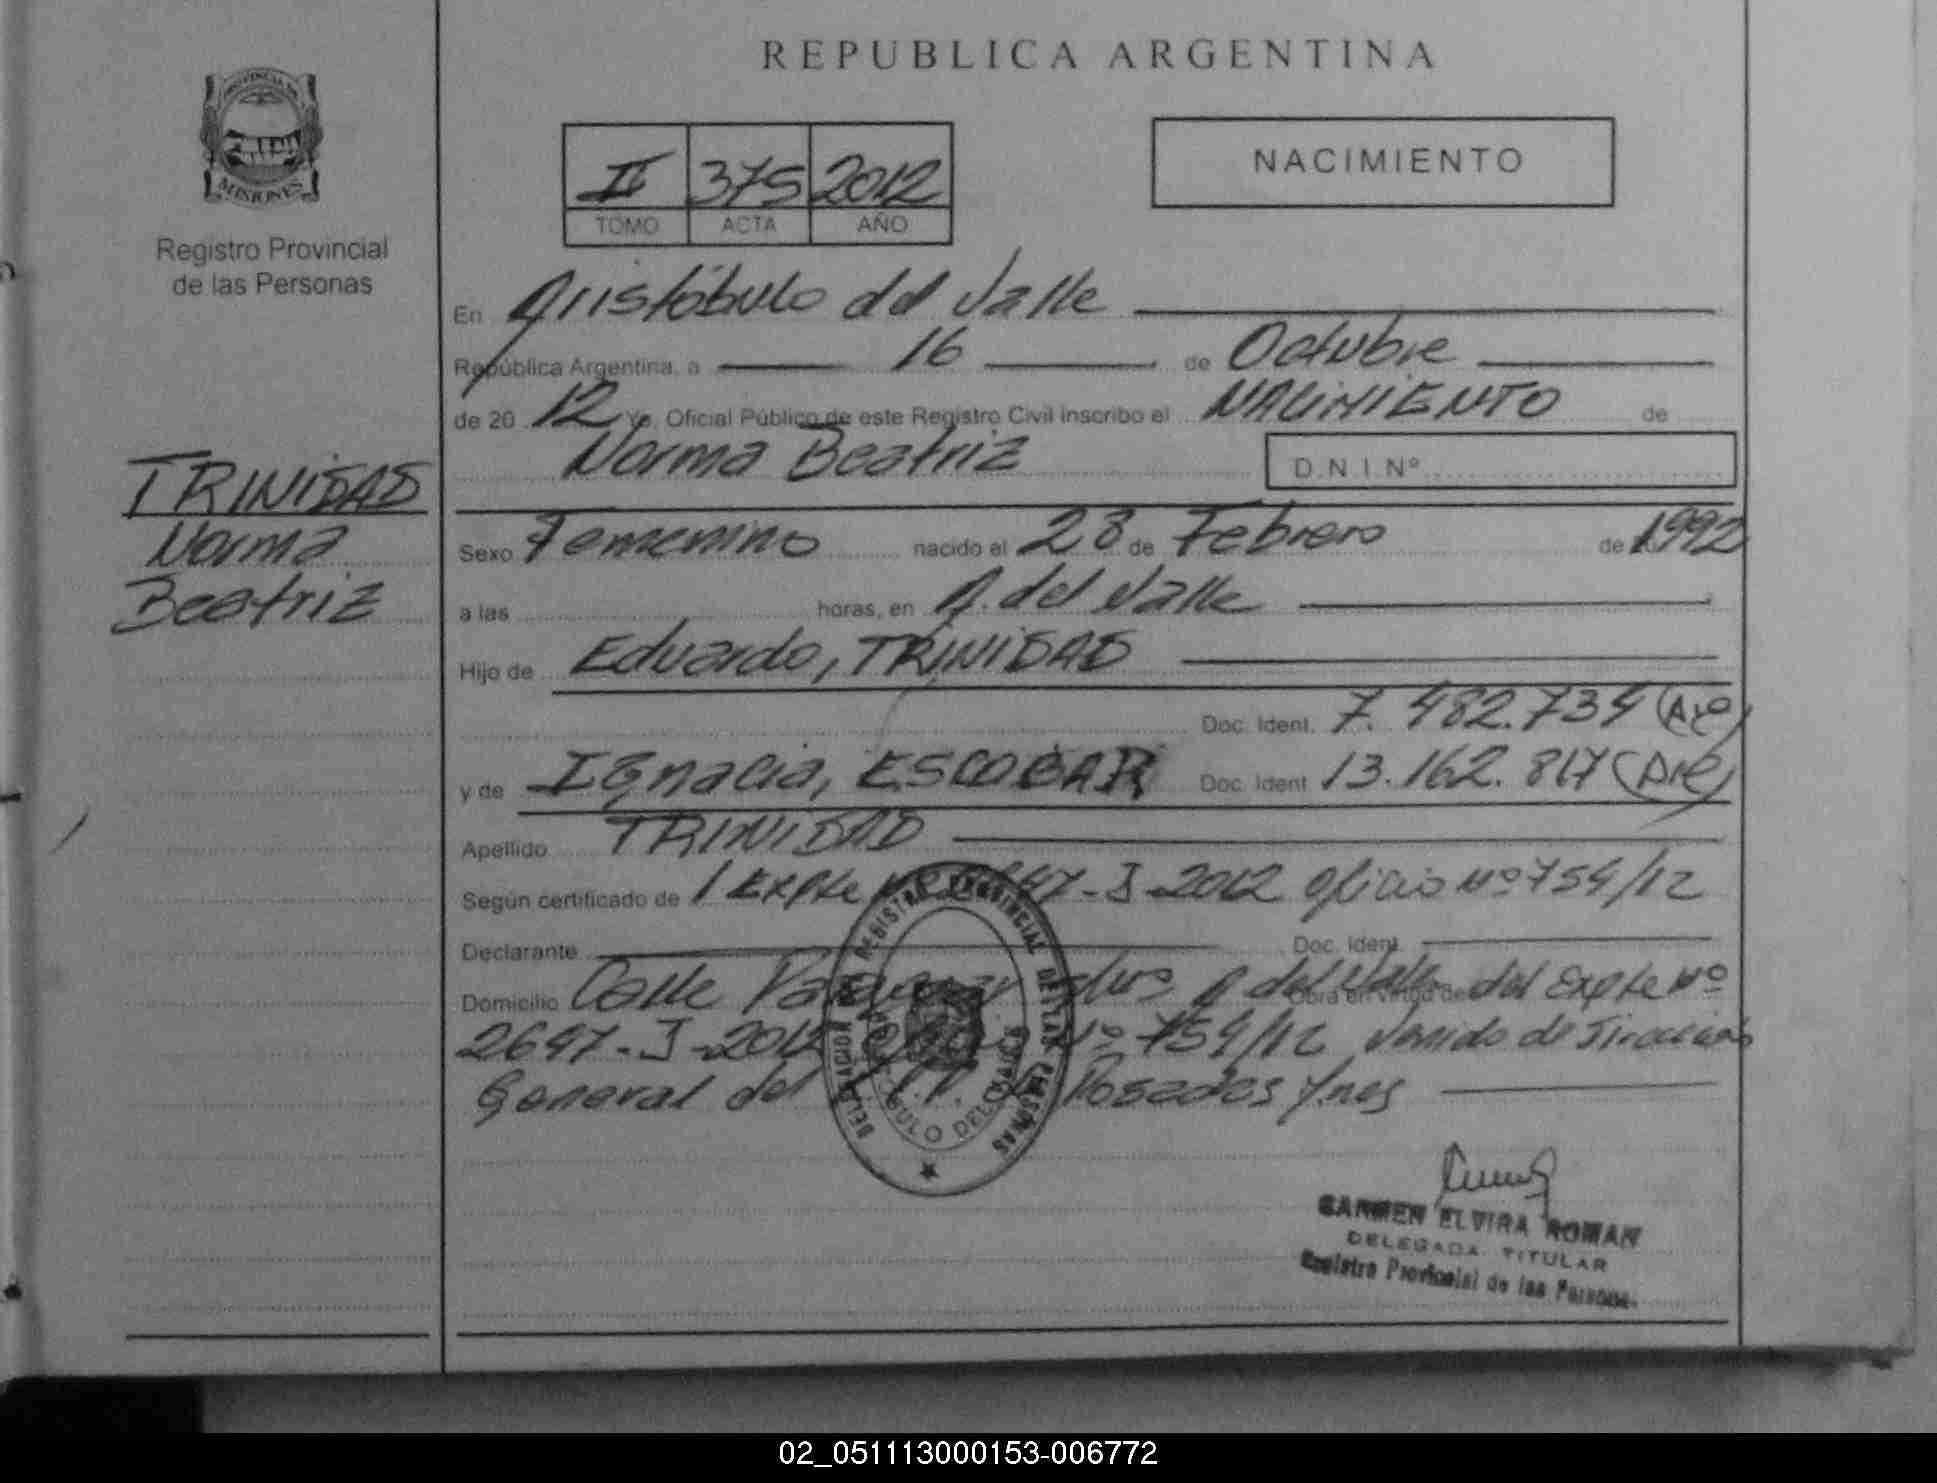 REPUBLICA ARGENTINA
PROVINCIA DE
MISIONES
Registro Provincial
de las Personas
II 375 2012
TOMO ACTA AÑO
NACIMIENTO
TRINIDAD
Norma
Beatriz
En Aristóbulo del Valle
República Argentina, a 16 de Octubre
de 20 12 Yo, Oficial Público de este Registro Civil inscribo el NACIMIENTO de
Norma Beatriz D.N.I.Nº
Sexo Femenino nacido el 28 de Febrero de 1992
a las horas, en A. del Valle
Hijo de Eduardo, TRINIDAD
Doc. Ident. 7.482.734 (Arg)
y de Ignacia, ESCOBAR Doc. Ident 13.162.817 (Arg)
Apellido TRINIDAD
Según certificado de / Expte Nº 2647-I-2012 Oficio Nº 754/12
Declarante Doc. Ident.
Domicilio Calle A del Valle Obra en virtud de del Expte Nº
2647-I-2012 Nº 754/12 Venido de Dirección
General del de Posadas Mnes
DELEGACION DEL REGISTRO PROVINCIAL DE LAS PERSONAS
ARISTOBULO DEL VALLE
CARMEN ELVIRA ROMAN
DELEGADA TITULAR
Registro Provincial de las Personas
02_051113000153-006772